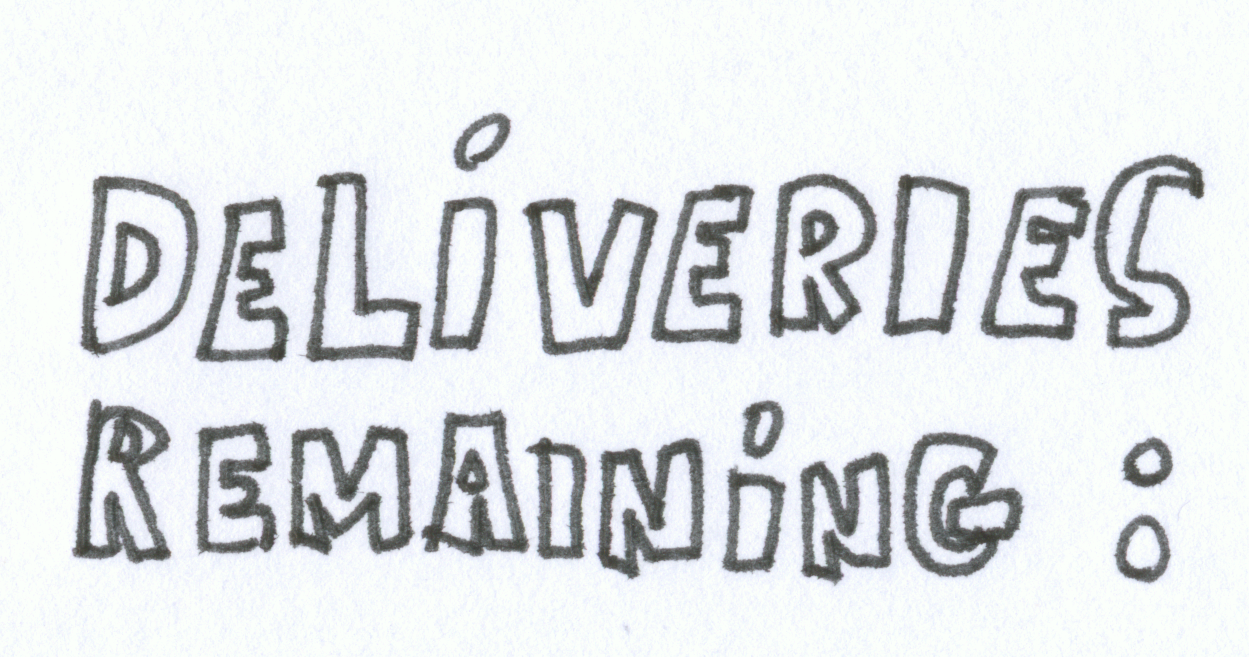 DELiVERIES
REMAINiNG :